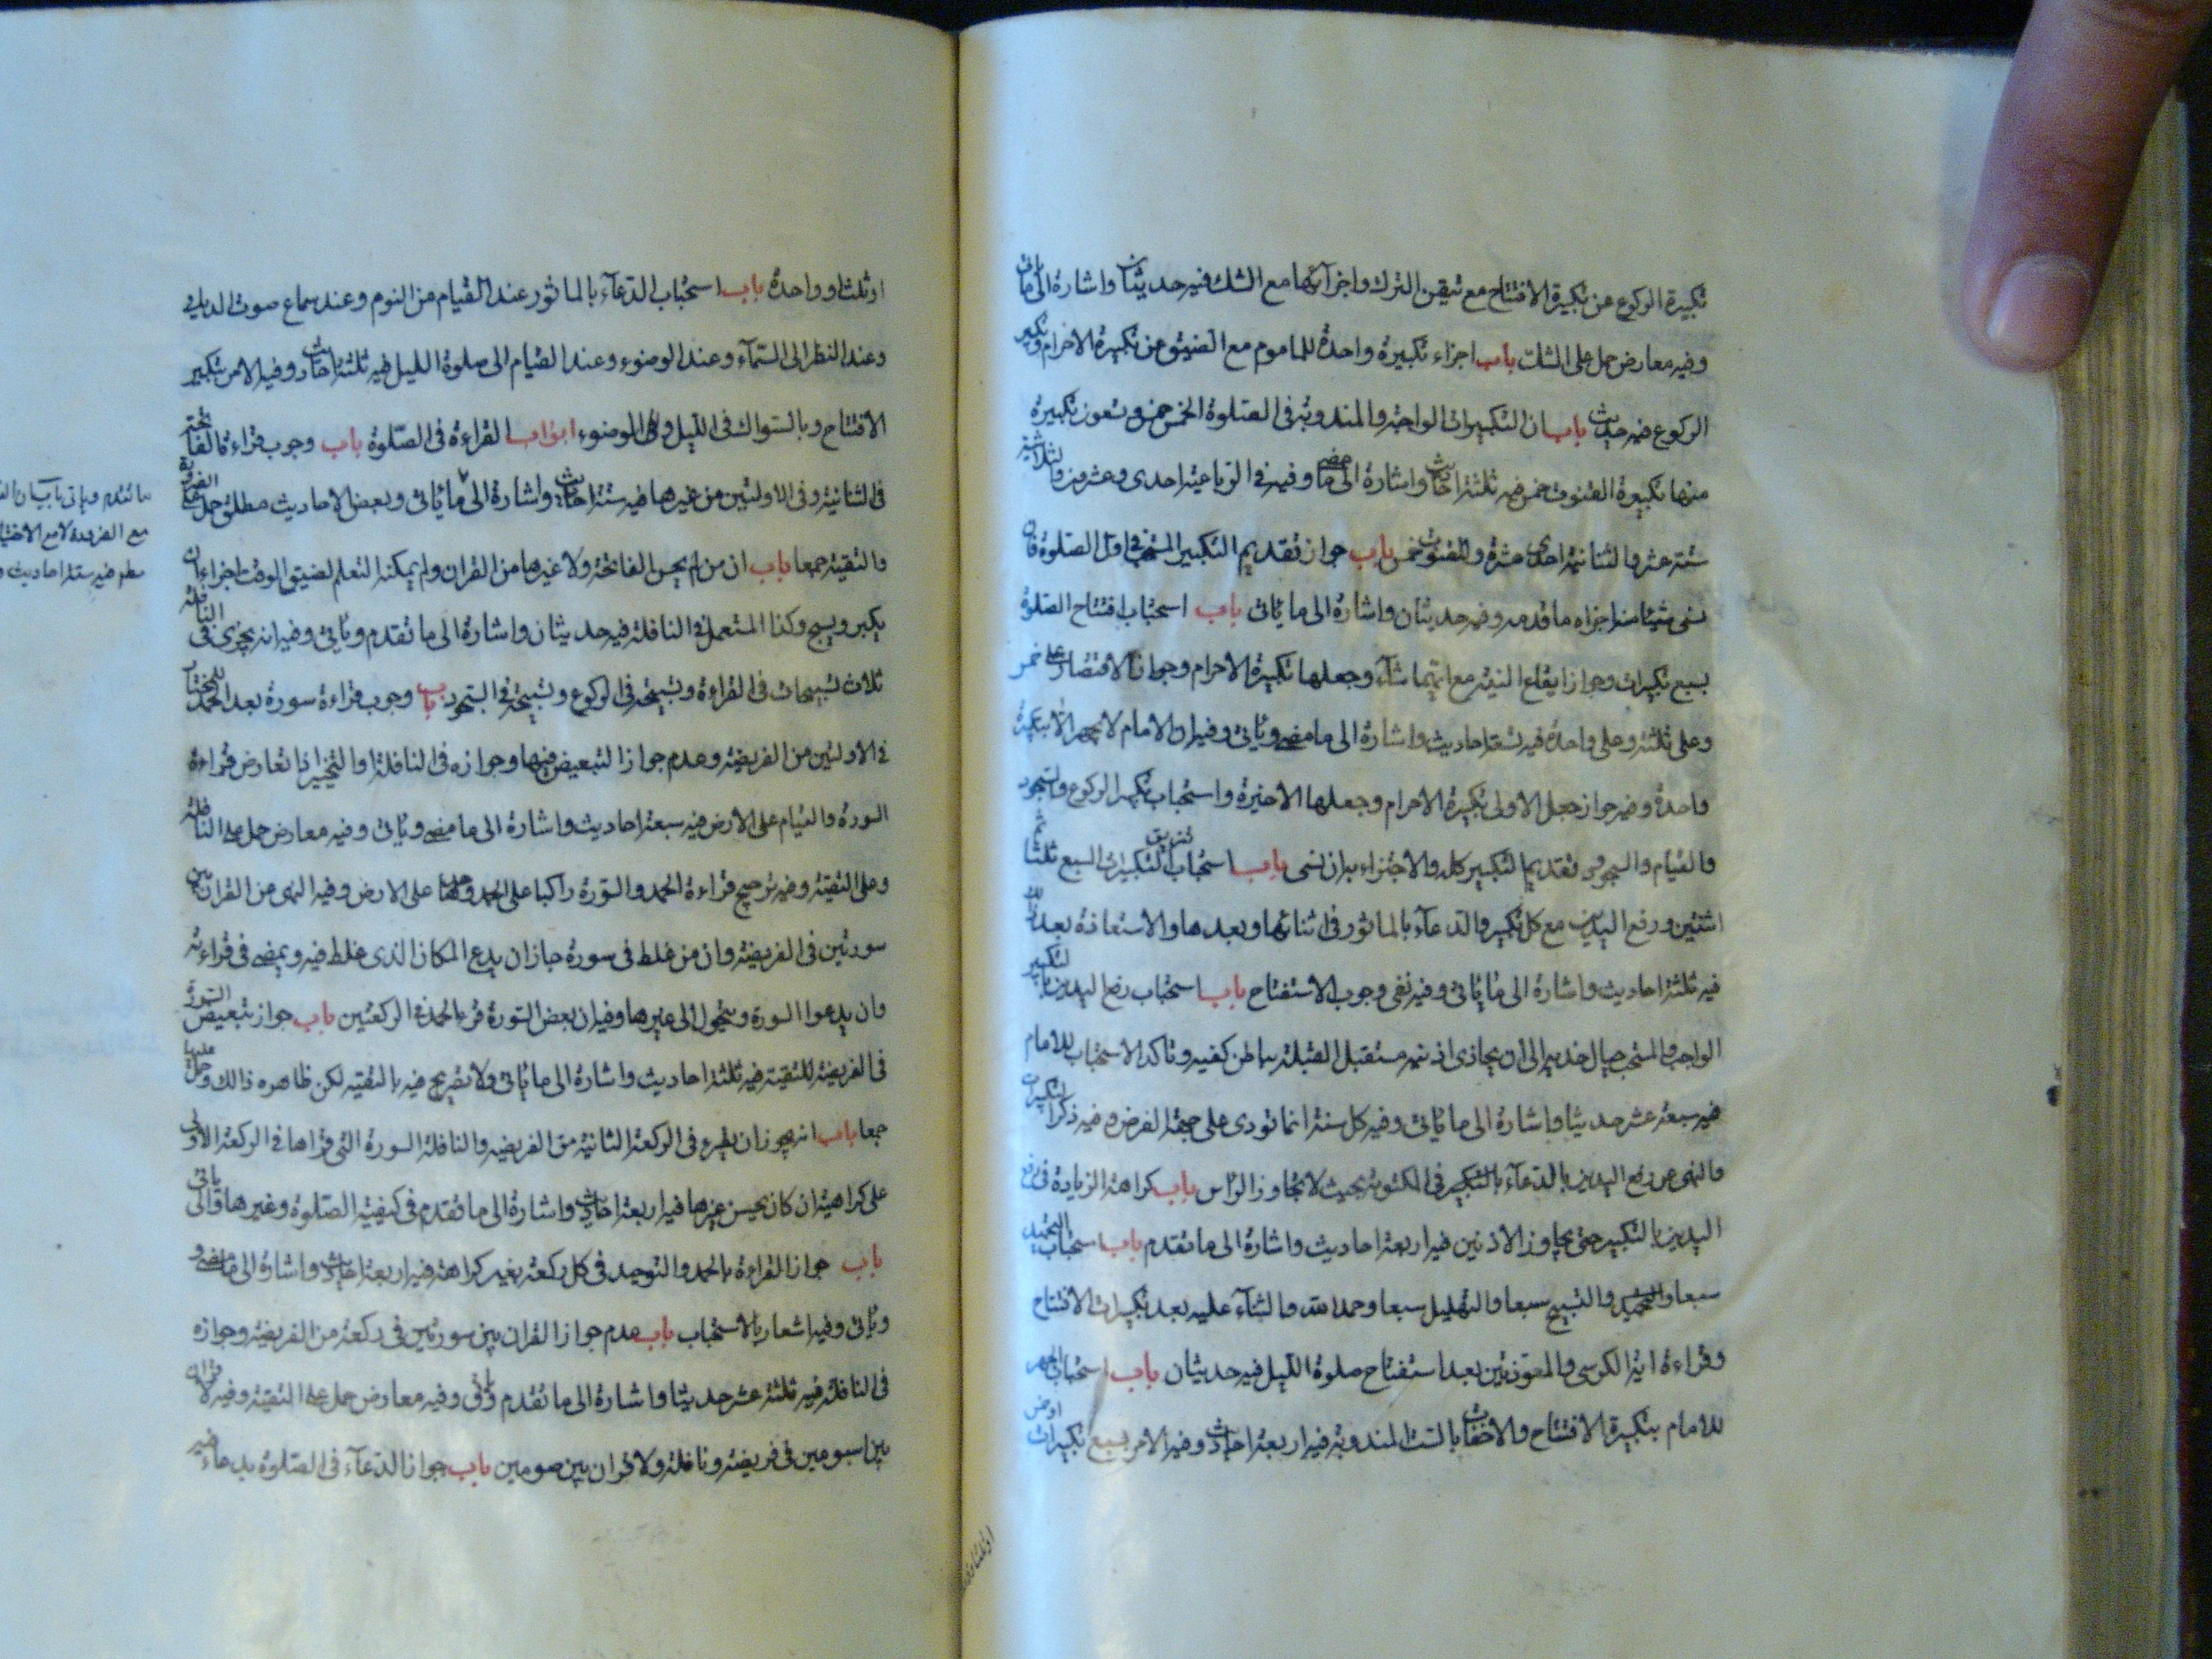 تكبيرة الركوع عن تكبيرة الافتتاح مع تيقن الترك واجزائها مع الشك فيه حديثان واشارة الى ما ياتى
وفيه معارض حمل على الشك باب اجزاء تكبيرة واحدة للماموم مع الضيق عن تكبيرة الاحرام وتكبير
الركوع فيه حديث باب ان التكبيرات الواجبة والمندوبة فى الصلوة الخمس خمس وتسعون تكبيرة
منها تكبيرة القنوت خمس فيه ثلثة احاديث واشارة الى ما مضى وفيه فى الرباعية احدى وعشرون والثلاثية
ستة عشر والثنائية احدى عشرة والقنوت خمس باب جواز تقديم التكبير المستحب فى اول الصلوة فان
نسى شيئا منه اجزاه ما قدمه وفيه حديثان واشارة الى ما ياتى باب استحباب افتتاح الصلوة
بسبع تكبيرات وجواز ايقاع النية مع ايتها شاء وجعلها تكبيرة الاحرام وجواز الاقتصار على خمس
وعلى ثلثة وعلى واحدة فيه تسعة احاديث واشارة الى ما مضى وياتى وفيه ان الامام لا يجهر الا بتكبيرة
واحدة وفيه جواز جعل الاولى تكبيرة الاحرام وجعلها الاخيرة واستحباب تكبير الركوع والسجود
والقيام والسجود وتقديم التكبير كله والاجتزاء به ان نسى باب استحباب تفريق التكبيرات السبع ثلثا ثم
اثنتين ورفع اليدين مع كل تكبير والدعاء بالماثور فى اثنائها وبعدها والاستعاذة بعد ذلك
فيه ثلثة احاديث واشارة الى ما ياتى وفيه نفى وجوب الاستفتاح باب استحباب رفع اليدين بالتكبير
الواجب والمستحب حيال خديه الى ان يحاذى اذنيه مستقبل القبلة بباطن كفيه وتاكد الاستحباب للامام
فيه سبعة عشر حديثا واشارة الى ما ياتى وفيه كل سنة انما تودى على جهة الفرض وفيه ذكر التكبيرات
والنهى عن رفع اليدين بالدعاء بالتكبير فى المكتوبة بحيث لا تجاوز الراس باب كراهة الزيادة فى رفع
اليدين بالتكبير حتى يجاوز الاذنين فيه اربعة احاديث واشارة الى ما تقدم باب استحباب التحميد
سبعا والتحميد والتسبيح سبعا والتهليل سبعا وحمد الله والثناء عليه بعد تكبيرات الافتتاح
وقراءة اية الكرسى والمعوذتين بعد استفتاح صلوة الليل فيه حديثان باب استحباب الجهر
للامام بتكبيرة الافتتاح والاخفات بالست المندوبة فيه اربعة احاديث وفيه الامر بسبع تكبيرات او خمس
او ثلث او واحدة باب استحباب الدعاء بالماثور عند القيام من النوم وعند سماع صوت الديك
وعند النظر الى السماء وعند الوضوء وعند القيام الى صلوة الليل فيه ثلثة احاديث وفيه الامر بتكبير
الافتتاح وبالسواك فى الليل وفى الوضوء ابواب القراءة فى الصلوة باب وجوب قراءة الفاتحة
فى الثنائية وفى الاولتين من غيرها فيه ستة احاديث واشارة الى ما ياتى وبعض الاحاديث مطلق حمل على الضرورة
والتقية جمعا باب ان من لم يحسن الفاتحة ولا غيرها من القران ولم يمكنه التعلم لضيق الوقت اجزاءه ان
يكبر ويسبح وكذا المستعمل فى النافلة فيه حديثان واشارة الى ما تقدم وياتى وفيه انه يجزى فى النافلة
ثلاث تسبيحات فى القراءة وتسبيحة فى الركوع وتسبيحة فى السجود باب وجوب قراءة سورة بعد الحمد للمختار
فى الاولتين من الفريضة وعدم جواز التبعيض فيها وجوازه فى النافلة والتخيير اذا تعارض قراءة
السورة والقيام على الارض فيه سبعة احاديث واشارة الى ما مضى وياتى وفيه معارض حمل على النافلة
وعلى التقية وفيه ترجيح قراءة الحمد والسورة راكبا على الحمد وحدها على الارض وفيه النهى عن القران بين
سورتين فى الفريضة وان من غلط فى سورة جاز ان يدع المكان الذى غلط فيه ويمضى فى قراءته
وان يدعوا السورة ويتحول الى غيرها وفيه ان بعض السورة قرء بالحمد فى الركعتين باب جواز تبعيض السورة
فى الفريضة للتقية فيه ثلثة احاديث واشارة الى ما ياتى ولا تصريح فيه بالتقية لكن ظاهره ذالك وحمل عليها
جمعا باب انه يجوز ان يقرء فى الركعة الثانية من الفريضة والنافلة السورة التى قراها فى الركعة الاولى
على كراهية ان كان يحسن غيرها فيه اربعة احاديث واشارة الى ما تقدم فى كيفية الصلوة وغيرها والى ياتى
باب جواز القراءة بالحمد والتوحيد فى كل ركعة بغير كراهة فيه اربعة احاديث واشارة الى ما مضى و
ياتى وفيه اشعار بالاستحباب باب عدم جواز القران بين سورتين فى ركعة من الفريضة وجوازه
فى النافلة فيه ثلثة عشر حديثا واشارة الى ما تقدم وياتى وفيه معارض حمل على التقية وفيه لا قران
بين اسبوعين فى فريضة ونافلة ولا قران بين صومين باب جواز الدعاء فى الصلوة بدعاء فيه
ما تقدم وياتى
مع الضرورة لا مع
فيه ستة احاديث